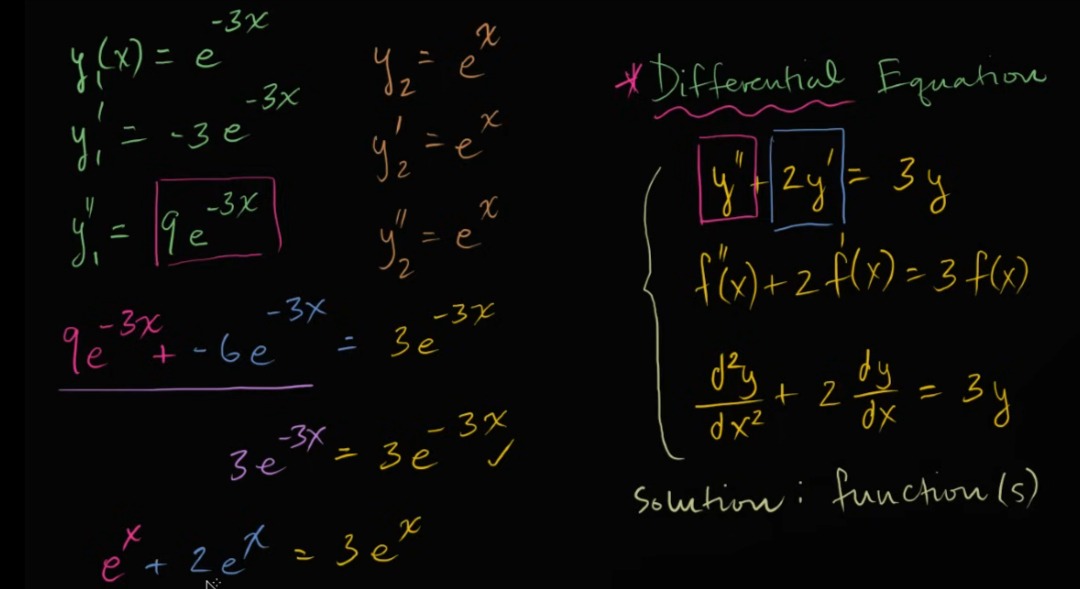 y₁(x) = e^{-3x}
y₁' = -3e^{-3x}
y₁'' = 9e^{-3x}
9e^{-3x} + -6e^{-3x} = 3e^{-3x}
3e^{-3x} = 3e^{-3x} ✓
e^x + 2e^x = 3e^x
y₂ = e^x
y₂' = e^x
y₂'' = e^x
* Differential Equation
y'' + 2y' = 3y
f''(x) + 2f'(x) = 3f(x)
d²y/dx² + 2 dy/dx = 3y
Solution: function(s)